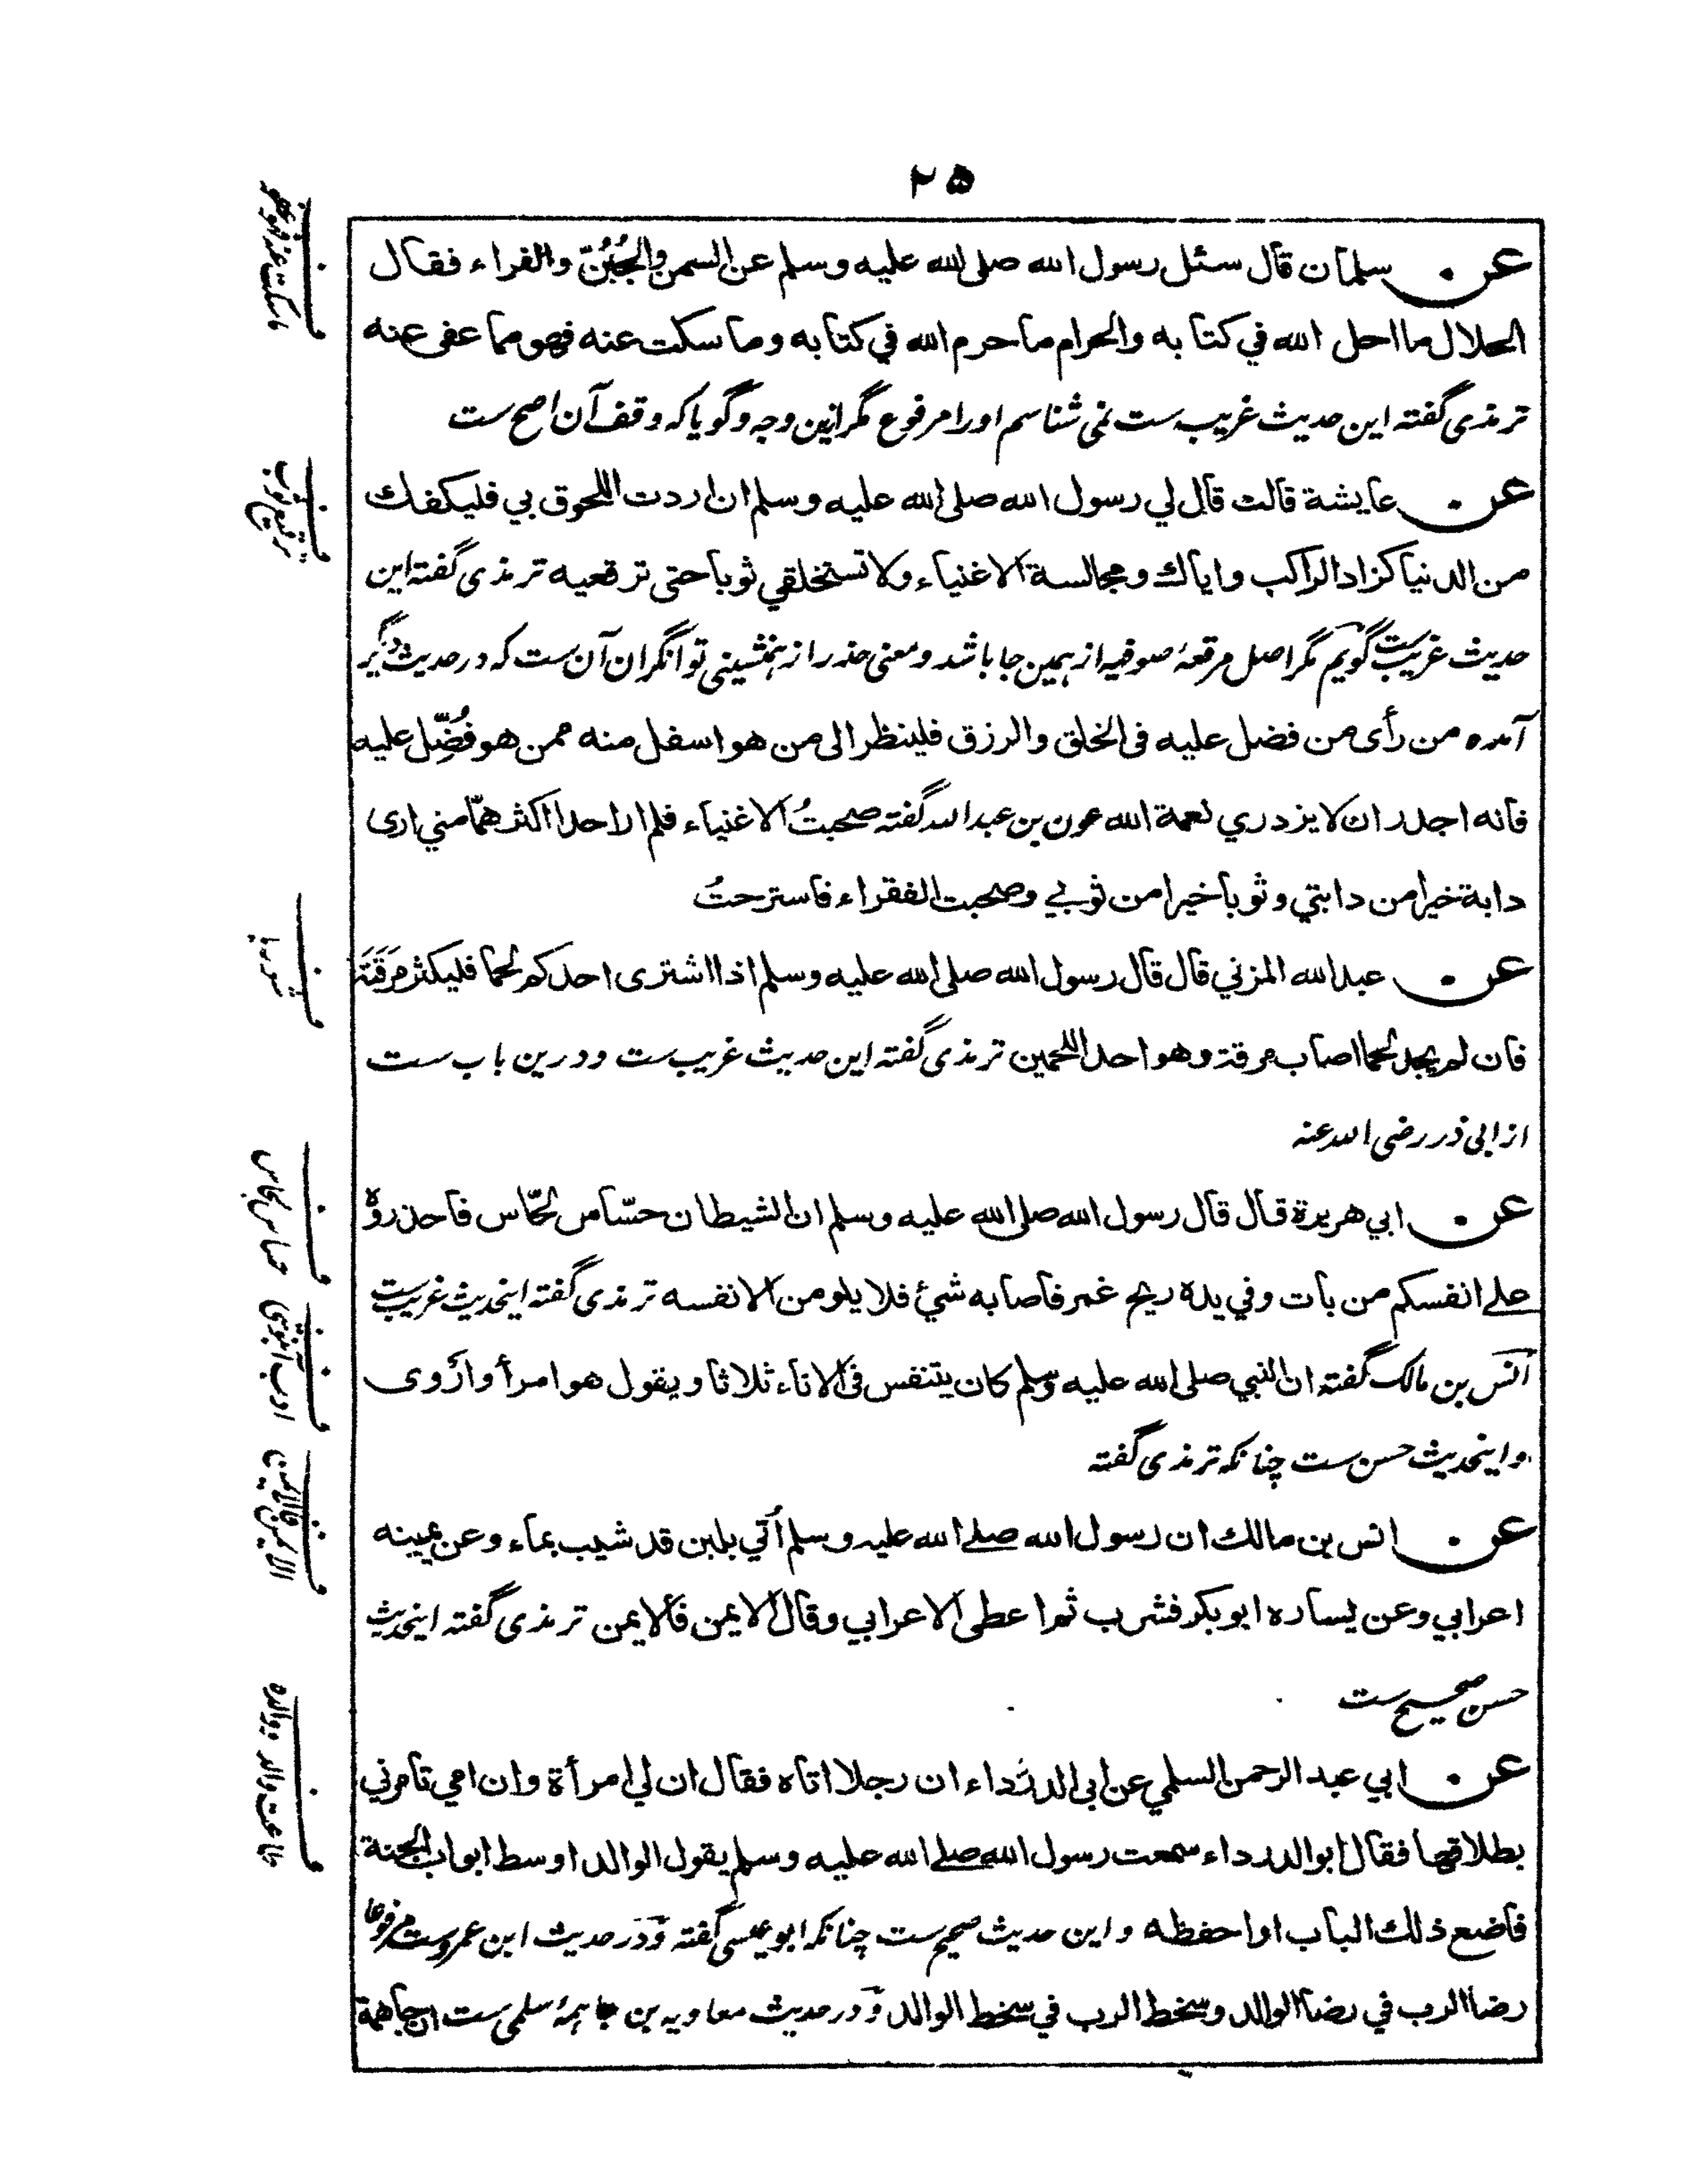 ۲۵
عن سلمان قال سئل رسول الله صلى الله عليه وسلم عن السمن والجُبُنّ والفراء فقال
الحلال ما احل الله في كتابه والحرام ما حرم الله في كتابه وما سكت عنه فهو مما عفى عنه
ترمذی گفته این حدیث غریب ست نمی شناسم او را مرفوع مگر ازین وجه و گویا که وقف آن اصح ست
عن عايشة قالت قال لي رسول الله صلى الله عليه وسلم ان اردت اللحوق بي فليكفك
من الدنيا كزاد الراكب واياك ومجالسة الاغنياء ولا تستخلقي ثوبا حتى ترقعيه ترمذی گفته این
حدیث غریب ست گویم مگر اصل مرقعۂ صوفیه از همین جا باشد و معنی حذر از همنشینی توانگران آن ست که در حدیث دیگر
آمده من رأى من فضل عليه فى الخلق والرزق فلينظر الى من هو اسفل منه ممن هو فُضِّل عليه
فانه اجدر ان لا يزدري نعمة الله عون بن عبد الله گفته صحبتُ الاغنياء فلم ار احدا اكثر همّا مني ارى
دابة خيرا من دابتي وثوبا خيرا من ثوبي وصحبت الفقراء فاسترحتُ
عن عبد الله المزني قال قال رسول الله صلى الله عليه وسلم اذا اشترى احدكم لحما فليكثر مَرَقَتَه
فان لم يجد لحما اصاب مرقة وهو احد اللحمين ترمذی گفته این حدیث غریب ست و درین باب ست
از ابی ذر رضی الله عنه
عن ابي هريرة قال قال رسول الله صلى الله عليه وسلم ان الشيطان حسّاس لحّاس فاحذروه
علے انفسكم من بات وفي يده ريح غمر فاصابه شيئ فلا يلومن الا نفسه ترمذی گفته اینحدیث غریب ست
انس بن مالک گفته ان النبي صلى الله عليه وسلم كان يتنفس فى الاناء ثلاثا ويقول هو امرأ واروى
و اینحدیث حسن ست چنانکه ترمذی گفته
عن انس بن مالك ان رسول الله صلے الله عليه وسلم اُتي بلبن قد شيب بماء وعن يمينه
اعرابي وعن يساره ابو بكر فشرب ثم اعطى الاعرابي وقال الايمن فالايمن ترمذی گفته اینحدیث
حسن صحیح ست
عن ابي عبد الرحمن السلمي عن ابى الدرداء ان رجلا اتاه فقال ان لي امرأة وان امي تامرني
بطلاقها فقال ابو الدرداء سمعت رسول الله صلے الله عليه وسلم يقول الوالد اوسط ابواب الجنة
فاضع ذلك الباب او احفظه و این حدیث صحیح ست چنانکه ابو عیسی گفته و در حدیث ابن عمروست مرفوعا
رضا الرب في رضا الوالد وسخط الرب في سخط الوالد و در حدیث معاویه بن جاهمۂ سلمی ست ان جاهمة
ف ما سکت عنه فهو عفو
ف ترقیع ثوب
ف شوربا
ف حساس لحاس
ف الایمن فالایمن
ف طاعت والد و والده